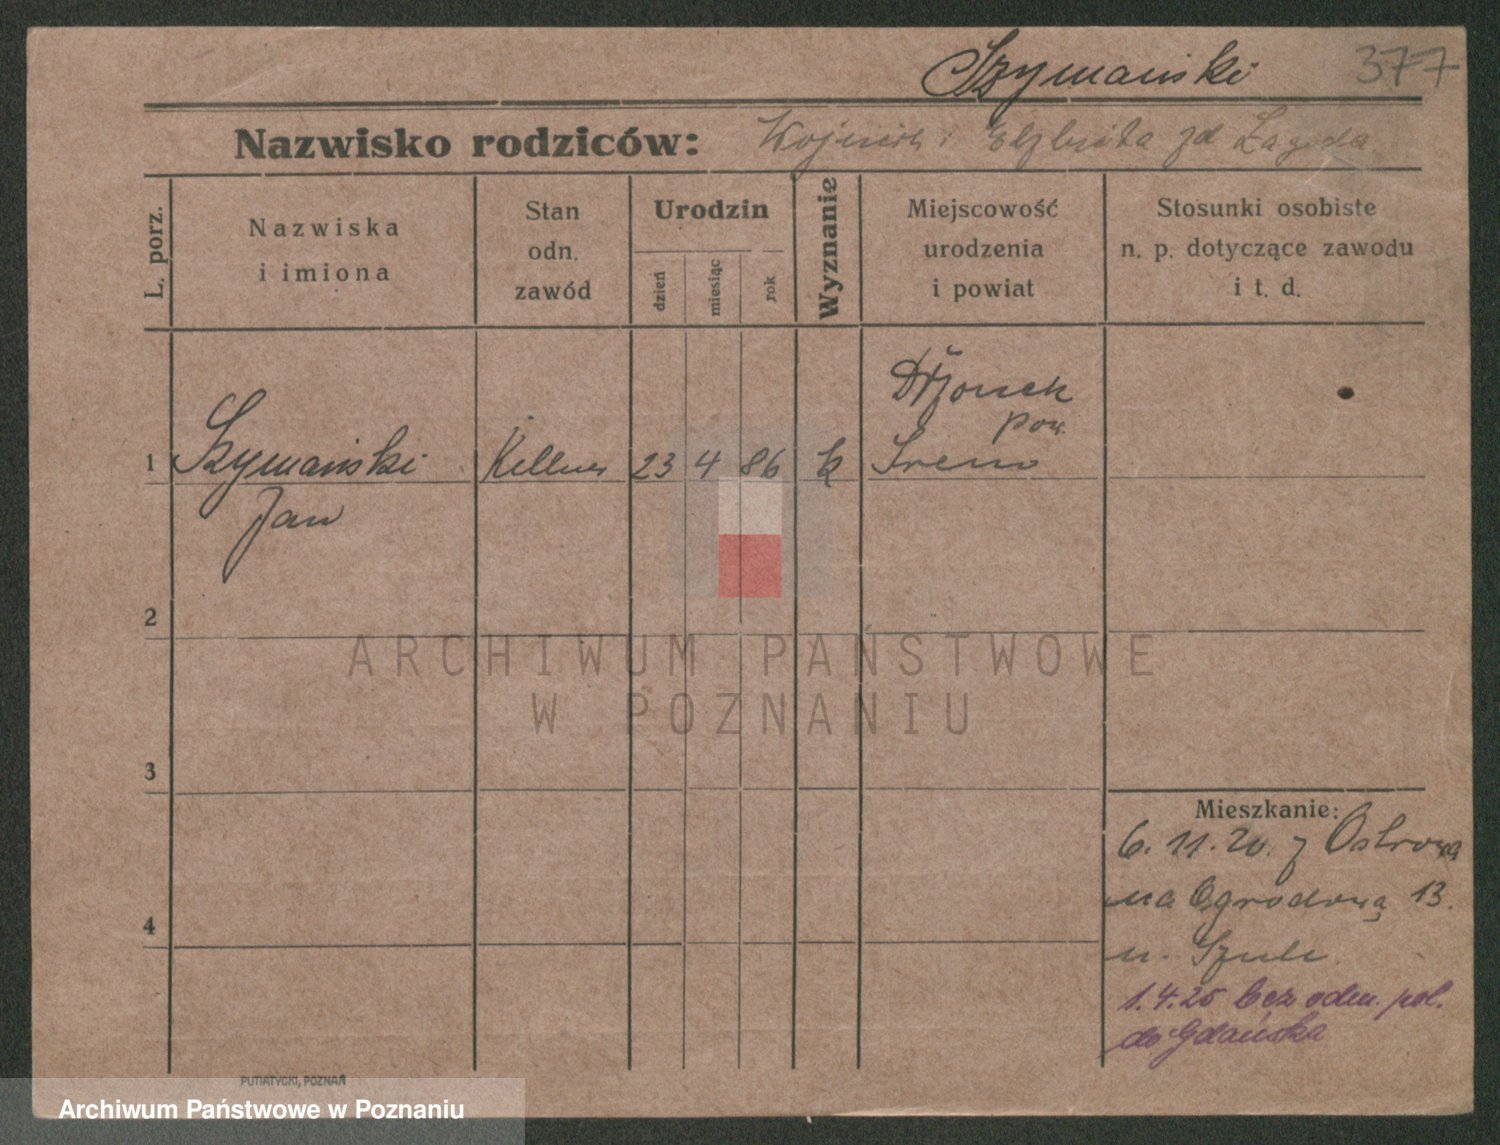 Szymański 377
Nazwisko rodziców: i Elżbieta zd Łagoda
L. porz.
Nazwiska
i imiona
Stan
odn.
zawód
Urodzin
dzień
miesiąc
rok
Wyznanie
Miejscowość
urodzenia
i powiat
Stosunki osobiste
n. p. dotyczące zawodu
i t. d.
pow.
1 Szymański Kellner 23 4 86 k Śrem
Jan
2
ARCHIWUM PAŃSTWOWE
W POZNANIU
3
Mieszkanie:
6. 11. 20. z Ostrowa
4
na Ogrodową 13.
u.
1.4.25 bez odm. pol.
do Gdańska
PUTIATYCKI, POZNAŃ
Archiwum Państwowe w Poznaniu